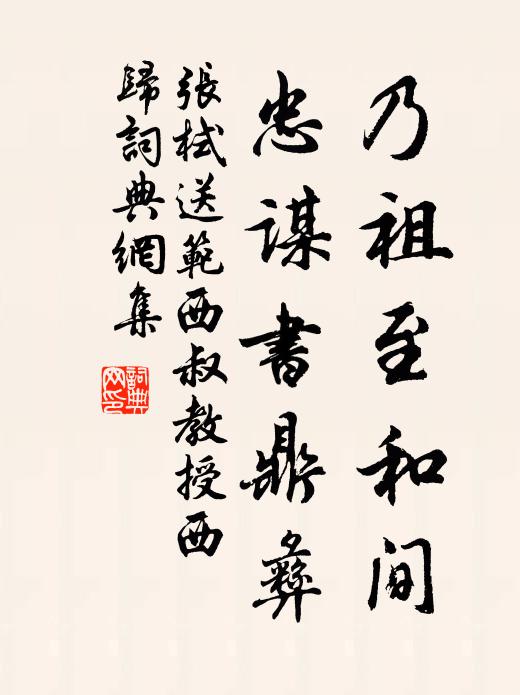 乃祖至和间
忠谋書鼎彝
張栻送範西叔教授西
歸詞典網集
詞典网印